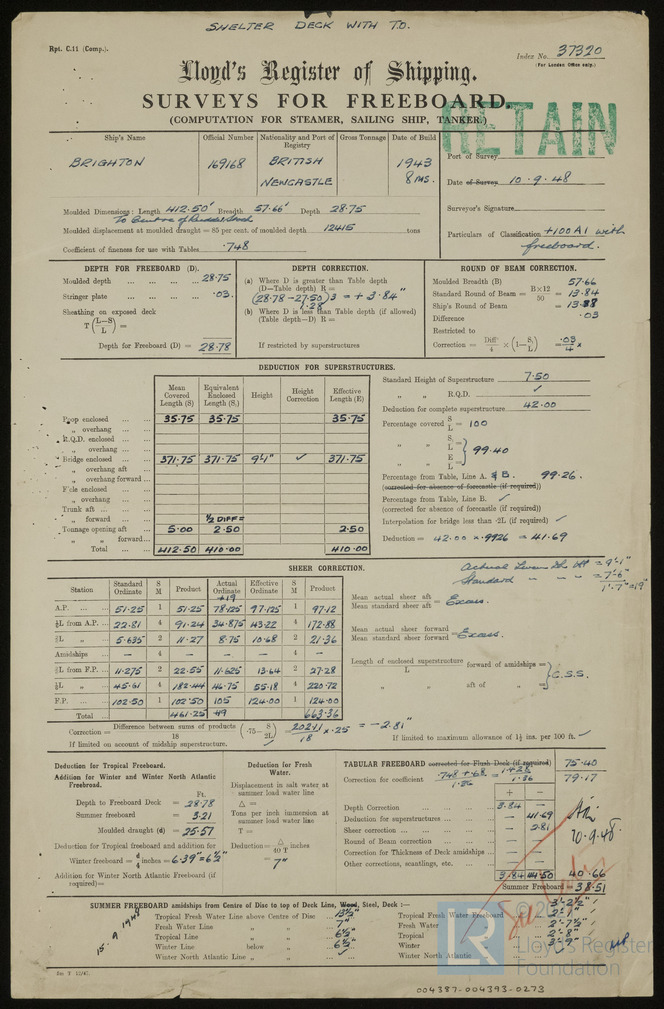 SHELTER DECK WITH T.O.
Rpt. C.11 (Comp.).
Index No. 37320
(For London Office only.)
Lloyd's Register of Shipping.
SURVEYS FOR FREEBOARD.
(COMPUTATION FOR STEAMER, SAILING SHIP, TANKER.)
RETAIN
Ship's Name
Official Number
Nationality and Port of Registry
Gross Tonnage
Date of Build
Port of Survey
BRIGHTON
169168
BRITISH
NEWCASTLE
1943
8 MS.
Date of Survey 10.9.48
Surveyor's Signature
Particulars of Classification +100A1 with freeboard.
Moulded Dimensions: Length 412.50' Breadth 57.66' Depth 28.75
To Centre of Rudder Stock
Moulded displacement at moulded draught = 85 per cent. of moulded depth 12415 tons
Coefficient of fineness for use with Tables .748
DEPTH FOR FREEBOARD (D).
Moulded depth ... 28.75
Stringer plate ... .03
Sheathing on exposed deck
T (L—S/L) =
Depth for Freeboard (D) = 28.78
DEPTH CORRECTION.
(a) Where D is greater than Table depth
(D—Table depth) R =
(28.78 - 27.50) 3 = + 3.84"
1.28
(b) Where D is less than Table depth (if allowed)
(Table depth—D) R =
If restricted by superstructures
ROUND OF BEAM CORRECTION.
Moulded Breadth (B) 57.66
Standard Round of Beam = B×12/50 = 13.84
Ship's Round of Beam = 13.88
Difference .03
Restricted to
Correction = Diff/4 × (1—S₁/L) = .03/4 ×
DEDUCTION FOR SUPERSTRUCTURES.
Mean Covered Length (S)
Equivalent Enclosed Length (S₁)
Height
Height Correction
Effective Length (E)
Poop enclosed 35.75 35.75 35.75
„ overhang
R.Q.D. enclosed
„ overhang
Bridge enclosed 371.75 371.75 9'1" ✓ 371.75
„ overhang aft
„ overhang forward
F'cle enclosed
„ overhang
Trunk aft
„ forward ½ DIFF =
Tonnage opening aft 5.00 2.50 2.50
„ „ forward
Total 412.50 410.00 410.00
Standard Height of Superstructure 7.50
„ „ R.Q.D. ✓
Deduction for complete superstructure 42.00
Percentage covered S/L = 100
„ „ S₁/L
„ „ E/L } = 99.40
Percentage from Table, Line A. & B. 99.26.
(corrected for absence of forecastle (if required))
Percentage from Table, Line B. ✓
(corrected for absence of forecastle (if required))
Interpolation for bridge less than ·2L (if required) ✓
Deduction = 42.00 × .9926 = 41.69
SHEER CORRECTION.
Station
Standard Ordinate
S M
Product
Actual Ordinate
Effective Ordinate
S M
Product
+19
A.P. 51.25 1 51.25 78.125 97.125 1 97.12
⅙L from A.P. 22.81 4 91.24 34.875 43.22 4 172.88
⅓L „ 5.635 2 11.27 8.75 10.68 2 21.36
Amidships — 4 — — — 4 —
⅓L from F.P. 11.275 2 22.55 11.625 13.64 2 27.28
⅙L „ 45.61 4 182.44 46.75 55.18 4 220.72
F.P. 102.50 1 102.50 105 124.00 1 124.00
Total 461.25 663.36
= 9'-1"
Standard „ „ „ = 7'-6"
1'.7" = 19"
Mean actual sheer aft
Mean standard sheer aft = Excess.
Mean actual sheer forward
Mean standard sheer forward = Excess.
Length of enclosed superstructure / L forward of amidships =
„ „ aft of „ = } C.S.S.
Correction = Difference between sums of products / 18 (·75— S/2L) = 202.11/18 × .25 = -2.81"
If limited on account of midship superstructure. ✓
If limited to maximum allowance of 1½ ins. per 100 ft. ✓
Deduction for Tropical Freeboard.
Addition for Winter and Winter North Atlantic Freeboard.
Ft.
Depth to Freeboard Deck = 28.78
Summer freeboard = 3.21
Moulded draught (d) = 25.57
Deduction for Tropical freeboard and addition for
Winter freeboard = d/4 inches = 6.39" = 6½"
Addition for Winter North Atlantic Freeboard (if required)=
Deduction for Fresh Water.
Displacement in salt water at summer load water line
Δ =
Tons per inch immersion at summer load water line
T =
Deduction = Δ/40 T inches
= 7"
TABULAR FREEBOARD corrected for Flush Deck (if required) 75.40
Correction for coefficient .748 + .68 / 1.36 = 1.428 / 1.36 79.17
+ —
Depth Correction 3.84 —
Deduction for superstructures — 41.69
Sheer correction — 2.81
Round of Beam correction — —
Correction for Thickness of Deck amidships — —
Other corrections, scantlings, etc.
3.84 44.50 40.66
Summer Freeboard = 38.51
20.9.48
SUMMER FREEBOARD amidships from Centre of Disc to top of Deck Line, Wood, Steel, Deck :— 3'-2½"
Tropical Fresh Water Line above Centre of Disc 13½"
Fresh Water Line „ „ 7"
Tropical Line „ „ 6½"
Winter Line below „ 6½"
Winter North Atlantic Line „ „ ✓
Tropical Fresh Water Freeboard 2'-1"
Fresh Water „ 2'-7½"
Tropical „ 2'-8"
Winter „ 3'-9"
Winter North Atlantic „
15.9.1948
LR
Lloyd's Register
Foundation
004387-004393-0273